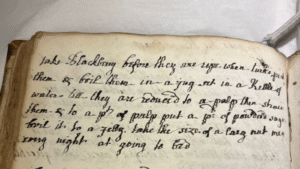 take Blackbury before they are ripe when turn'd red
them & boil them in a jug set in a Kettle of
water till they are reduced to a pulp then strain
them & to a pt of pulp put a pd of powder'd suga
boil it to a Jelly take the size of a larg nut me
rong night at going to bed